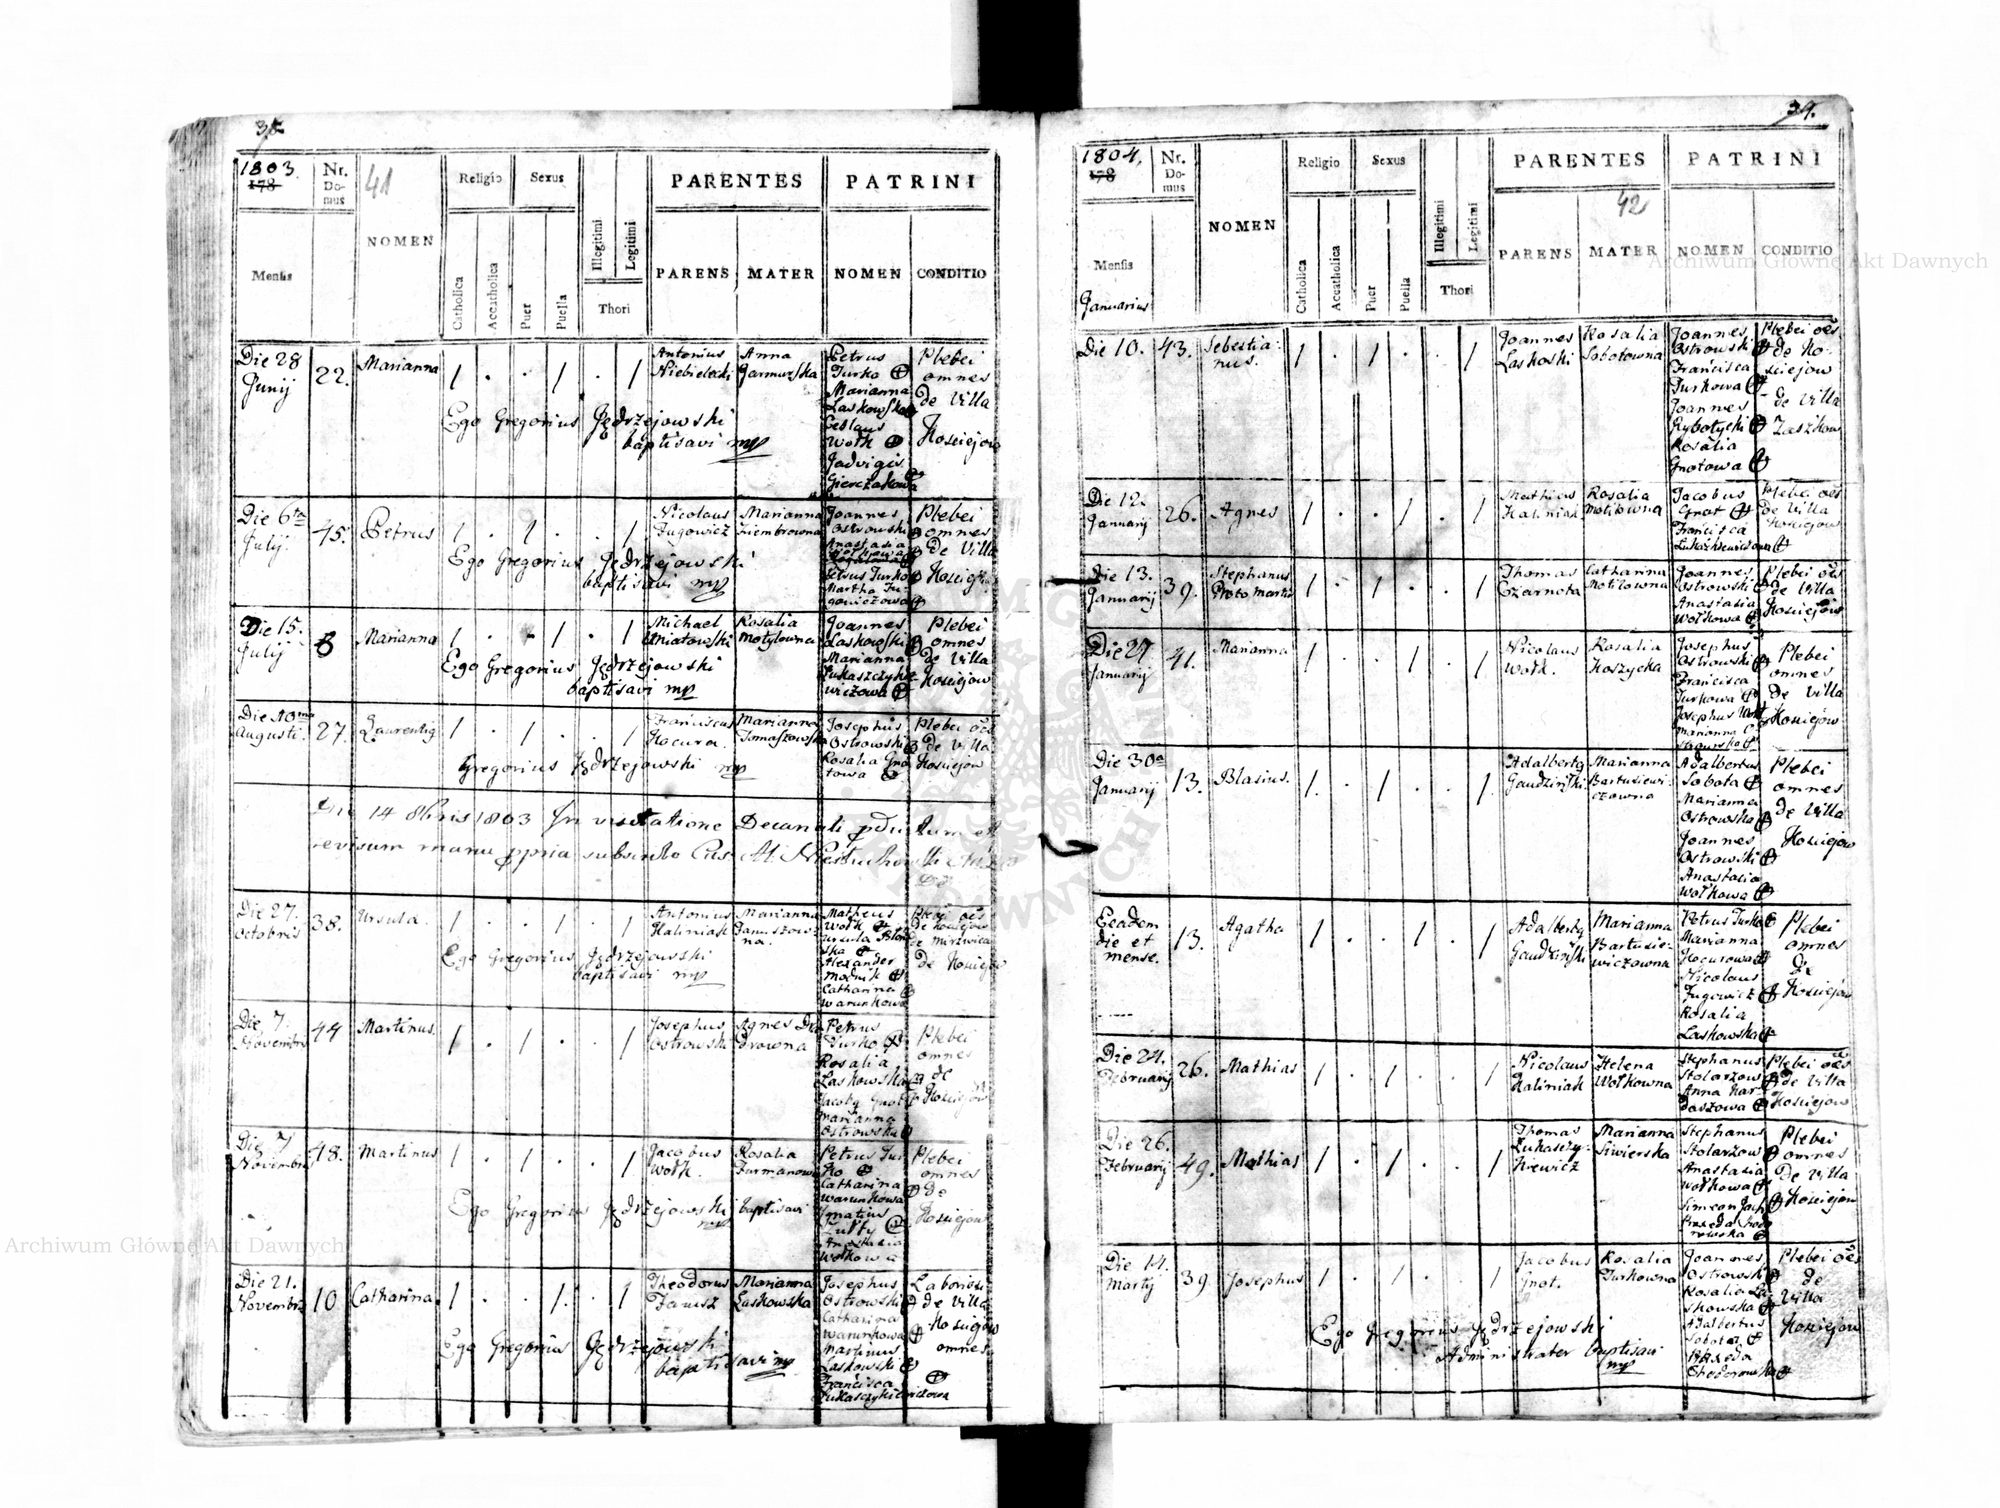 38
1803.
178
Nr. Domus
41
NOMEN
Religio
Sexus
PARENTES
PATRINI
Mensis
Catholica
Accatholica
Puer
Puella
Illegitimi
Legitimi
Thori
PARENS
MATER
NOMEN
CONDITIO
Die 28 Junij
22.
Marianna
1 . . 1 . 1
Antonius Niebielecki
Anna Garmurska
Petrus
Turko
Marianna
Laskowska
Ceslaus
Wołk
Jadvigis
Gierczakowa
Plebei
omnes
de Villa
Kosciejow
Ego Gregorius Jędrzejowski
baptisavi mp
Die 6ta Julij.
45.
Petrus
1 . 1 . . 1
Nicolaus Jugowicz
Marianna Ziembrowna
Joannes
Ostrowski
Anastasia
Wołkowa
Petrus Turko
Martha Ju-
gowiczowa
Plebei
omnes
de Villa
Ego Gregorius Jędrzejowski
baptisavi mp
Die 15. Julij
8
Marianna
1 . . 1 . 1
Michael Kniatowski
Rosalia Motylowna
Joannes
Laskowski
Marianna
Łukaszczyke-
wiczowa
Plebei
omnes
de Villa
Kosciejow
Ego Gregorius Jędrzejowski
baptisavi mp
Die 10ma Augusti.
27.
Laurentig
1 . 1 . . 1
Franciscus Kocura.
Marianna Tomaszowska
Josephus
Ostrowski
Rosalia Gno
towa
Plebei oes
de Villa
Kosciejow
Gregorius Jędrzejowski mp
Die 14 8bris 1803 In visitatione Decanali
revisum manu ppria subscribo
Die 27. Octobris
38.
Ursula.
1 . . 1 . 1
Antonius Kaliniak
Marianna Januszow-
na.
Matheus
Wołk
Ursula
Alexander
Moznik
Catharina
Warunkowa
Plebei oes
de Kosciejow
de Kosciejow
Ego Gregorius Jędrzejowski
baptisavi mp
Die 7. Novembris
44
Martinus.
1 . 1 . . 1
Josephus Ostrowski
Agnes
Petrus
Turko
Rosalia
Laskowska
Jacobg Gnot
Marianna
Ostrowska
Plebei
omnes
de
Kosciejow
Die 7 Novembris
48.
Martinus
1 . 1 . . 1
Jacobus Wołk.
Rosalia Furmanowna
Petrus Tur
ko
Catharina
Warunkowa
Ignatius
Anastasia
Wołkowa
Plebei
omnes
de
Kosciejow
Ego Gregorius Jędrzejowski baptisavi
mp
Die 21. Novembris
10
Catharina.
1 . . 1. . 1
Theodorus Janisz
Marianna Laskowska
Josephus
Ostrowski
Catharina
Warunkowa
Martinus
Laskowski
Francisca
Łukaszczykiewiczowa
de Villa
Kosciejow
omnes
Ego Gregorius Jędrzejowski
baptisavi mp
39.
1804.
178
Nr. Domus
NOMEN
Religio
Sexus
PARENTES
PATRINI
42
Mensis
Januarius
Catholica
Accatholica
Puer
Puella
Illegitimi
Legitimi
Thori
PARENS
MATER
NOMEN
CONDITIO
Die 10.
43.
Sebestia-
nus.
1 . 1 . . 1
Joannes Laskoski
Rosalia Sobotowna
Joannes
Ostrowski
Francisca
Turkowa
Joannes
Rybotycki
Rosalia
Gnotowa
Plebei oes
de Ko-
sciejow
de Villa
Zaszkow
Die 12. Januarij
26.
Agnes
1 . . 1 . 1
Mathias Kaliniak
Rosalia Motilowna
Jacobus
Gnot
Francisca
Łukaszkiewiczowa
Plebei oes
de Villa
Kosciejow
Die 13. Januarij
39.
Stephanus
Proto Martir
1 . 1 . . 1
Thomas Czarnota
Catharina Motilowna
Joannes
Ostrowski
Anastasia
Wołkowa
Plebei oes
de Villa
Kosciejow
Die 27 Januarij
41.
Marianna
1 . . 1 . 1
Nicolaus Wołk.
Rosalia Koszycka
Josephus
Ostrowski
Francisca
Turkowa
Josephus Wołk
Marianna O-
strowska
Plebei
omnes
de Villa
Kosciejow
Die 30a Januarij
13.
Blasius.
1 . 1 . . 1.
Adalbertg Gaudziński.
Marianna Bartusiewi-
czowna
Adalbertus
Sobota
Marianna
Ostrowska
Joannes
Ostrowski
Anastasia
Wołkowa
Plebei
omnes
de Villa
Kosciejow
Eeadem
die et
mense.
13.
Agatha
1 . . 1 . 1
Adalbertg Gaudziński
Marianna Bartusie-
wiczowna
Petrus Turko
Marianna
Kocurowa
Nicolaus
Jugowicz
Rosalia
Laskowska
Plebei
omnes
de
Kosciejow
Die 24. Februarij
26.
Mathias
1 . 1 . . 1
Nicolaus Kaliniak
Helena Wołkowna
Stephanus
Stolarzow
Anna Kar-
daszowa
Plebei oes
de Villa
Kosciejow
Die 26. Februarij
49.
Mathias
1 . 1 . . 1
Thomas Łukaszy-
kiewicz
Marianna Siwierska
Stephanus
Stolarzow
Anastasia
Wołkowa
Plebei
omnes
de Villa
Kosciejow
Die 14. Martij
39.
Josephus
1 . 1 . . 1
Jacobus Gnot.
Rosalia Turkowna
Joannes
Ostrowski
Rosalia La-
skowska
Adalbertus
Sobota
Plebei oes
de
Villa
Kosciejow
Ego Gregorius Jędrzejowski
Administrater baptisavi
mp
Archiwum Główne Akt Dawnych
Archiwum Główne Akt Dawnych